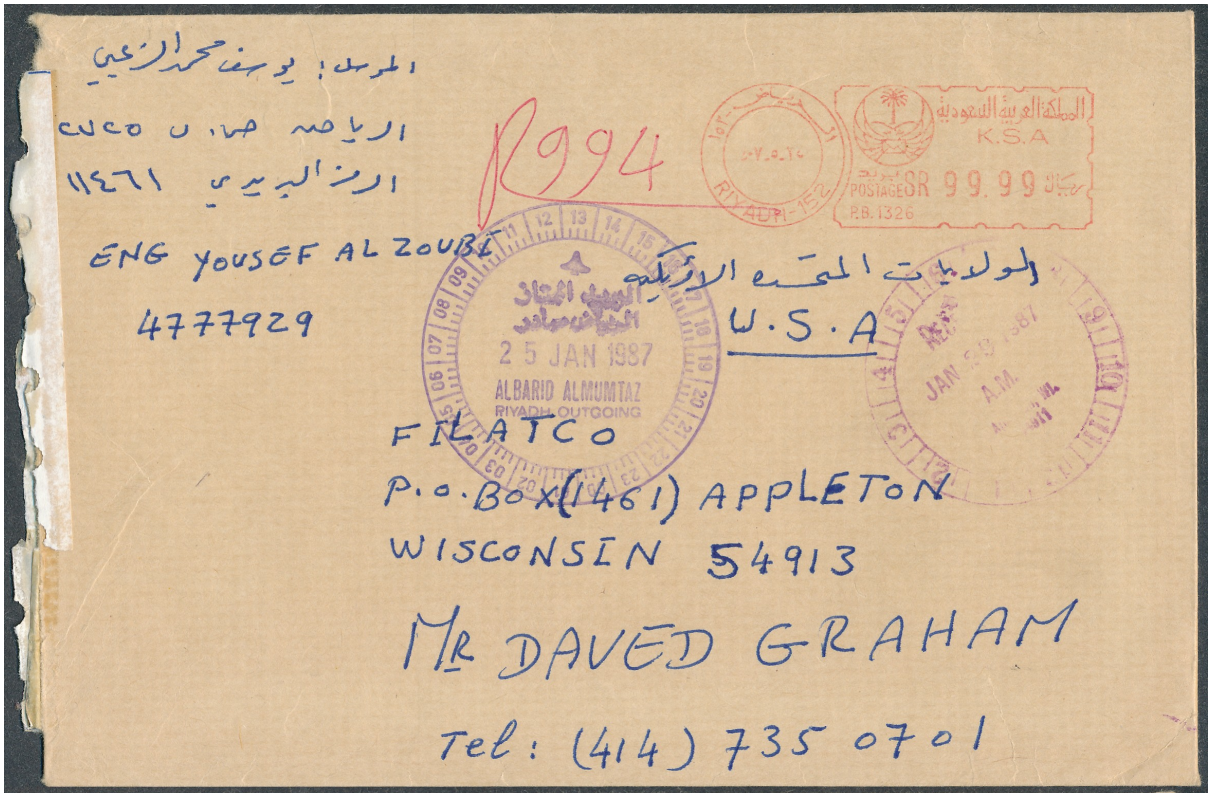 المرسل: يوسف محمد الزعبي
الرياض ص.ب
الرمز البريدي ١١٤٦١
ENG YOUSEF ALZOUBI
4777929
R994
RIYADH-152
المملكة العربية السعودية
K.S.A
POSTAGE SR 99.99 ريال
P.B. 1326
06 07 08 09 11 12 13 14 15 17 18 19 20 21 22 02 03
البريد الممتاز
الرياض صادر
25 JAN 1987
ALBARID ALMUMTAZ
RIYADH OUTGOING
الولايات المتحده الامريكيه
U.S.A
2 3 4 5 9 10 11
JAN 1987
A.M.
FILATCO
P.O.BOX(1461) APPLETON
WISCONSIN 54913
MR DAVED GRAHAM
Tel: (414) 735 0701